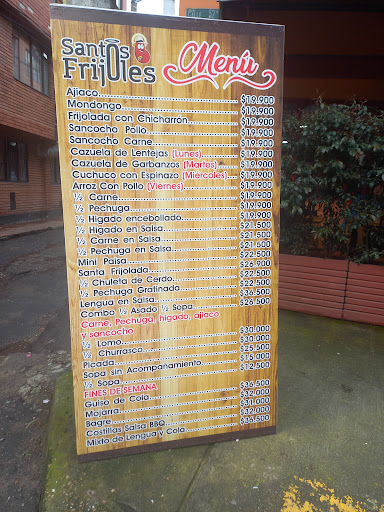 Santos
Frijoles
Menú
Ajiaco $19.900
Mondongo $19.900
Frijolada con Chicharrón $19.900
Sancocho Pollo $19.900
Sancocho Carne $19.900
Cazuela de Lentejas (Lunes) $19.900
Cazuela de Garbanzos (Martes) $19.900
Cuchuco con Espinazo (Miercoles) $19.900
Arroz Con Pollo (Viernes) $19.900
½ Carne $19.900
½ Pechuga $19.900
½ Higado encebollado $19.900
½ Higado en Salsa $21.500
½ Carne en Salsa $21.500
½ Pechuga en Salsa $21.500
Mini Paisa $22.500
Santa Frijolada $26.900
½ Chuleta de Cerdo $22.500
½ Pechuga Gratinada $22.500
Lengua en Salsa $36.500
Combo ½ Asado ½ Sopa $26.500
Carne, Pechuga, higado, ajiaco
y sancocho
½ Lomo $30.000
½ Churrasco $30.000
Picada $25.500
Sopa sin Acompañamiento $15.000
½ Sopa $12.500
FINES DE SEMANA
Guiso de Cola $36.500
Mojarra $32.000
Bagre $31.000
Costillas Salsa BBQ $32.000
Mixto de Lengua y Cola $36.500